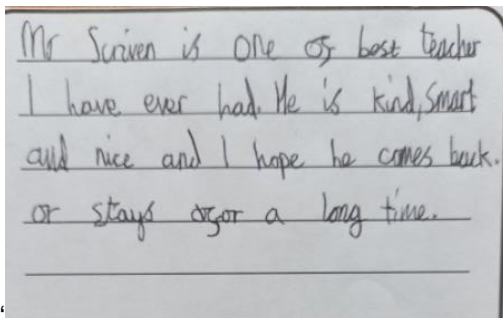 Mr Scriven is one of best teacher
I have ever had. He is kind, smart
and nice and I hope he comes back.
or stays for a long time.